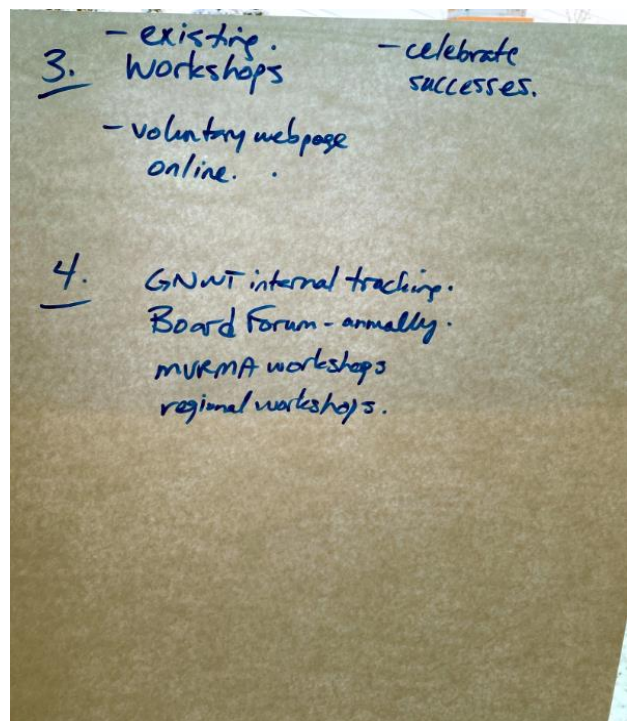 3. - existing.
workshops
- celebrate
successes.
- voluntary webpage
online.
4. GNWT internal tracking.
Board Forum - annually.
MVRMA workshops
regional workshops.